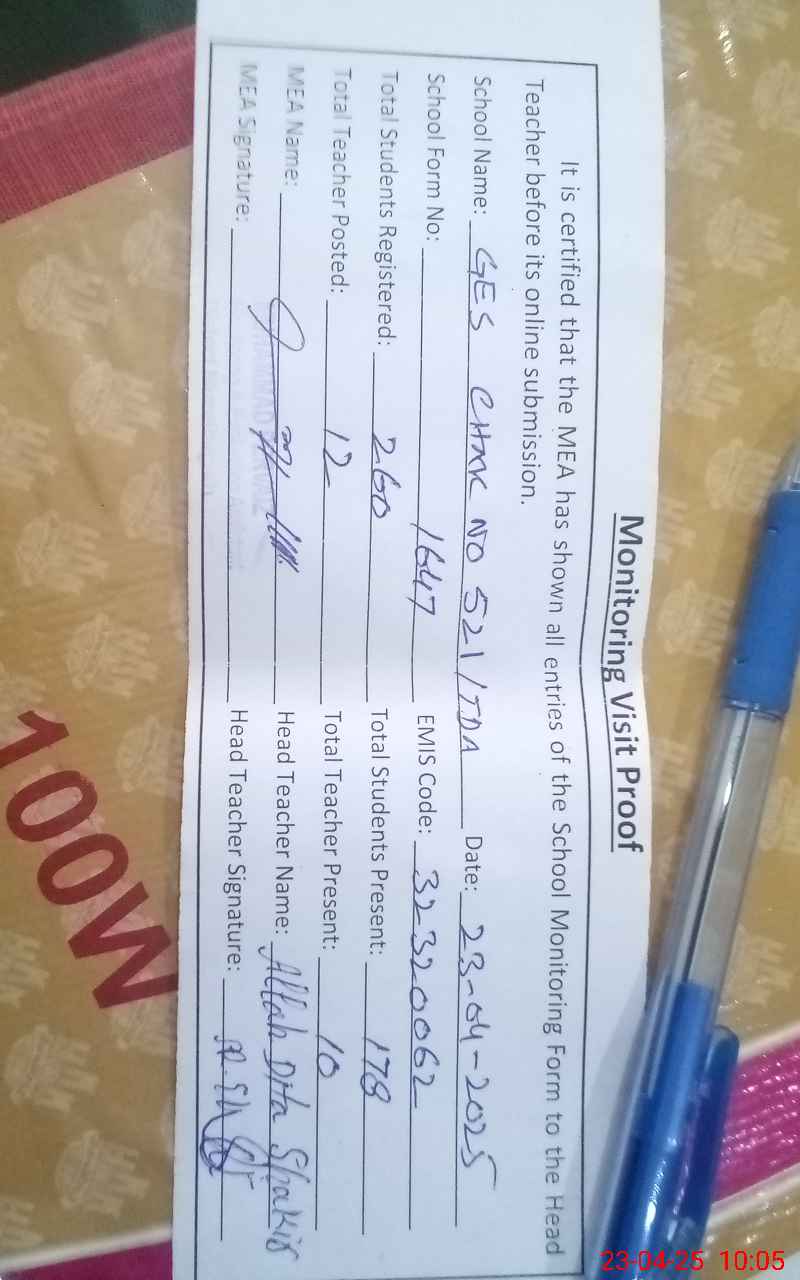 Monitoring Visit Proof
It is certified that the MEA has shown all entries of the School Monitoring Form to the Head
Teacher before its online submission.
School Name: GES CHAK NO 521/TDA Date: 23-04-2025
School Form No: 1647 EMIS Code: 32320062
Total Students Registered: 260 Total Students Present: 178
Total Teacher Posted: 12 Total Teacher Present: 10
MEA Name: Head Teacher Name: Allah Dita Shakir
MEA Signature: Head Teacher Signature:
100W
23-04-25 10:05